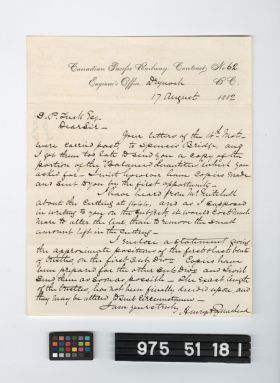 Canadian Pacific Railway, Contract No 62
Engineer's Office Drynoch B C
17 August 1882
Esq.
Dear Sir –
Your letters of the 14th Inst
were carried past, to Spences' Bridge, and
I got them too late to send you a copy of the
portion of the Balanced Quantities which you
asked for – I will however have Copies made
and Sent to you by the first opportunity –
I have heard from Mr. Mitchell
about the Cutting at and as I supposed
in writing to you on the Subject, it would cost much
more to alter the line than to remove the small
amount left in the Cutting –
I enclose a statement giving
the approximate positions of the first
of on the first Sub. Divn. Copies have
been prepared for the other Sub Divns and I will
Send them as soon as possible – The exact length
of the has not been finally decided upon and
they may be altered to suit circumstances –
I am yours truly
Henry
975 51 18 1